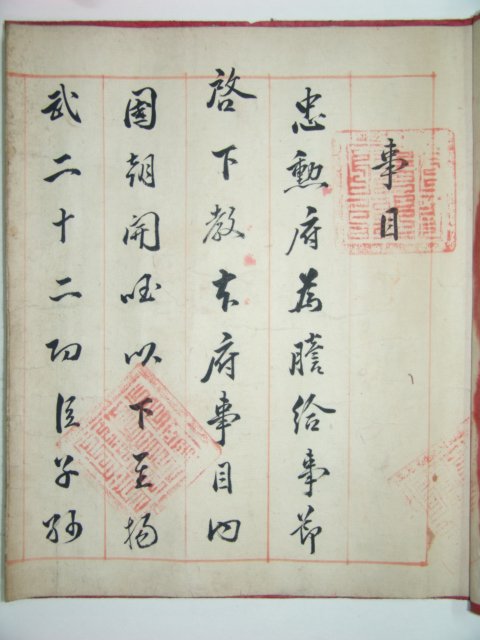 事目
忠勳府爲謄給事節
啓下教本府事目內
國朝開國以下至揚
武二十二功臣子孫